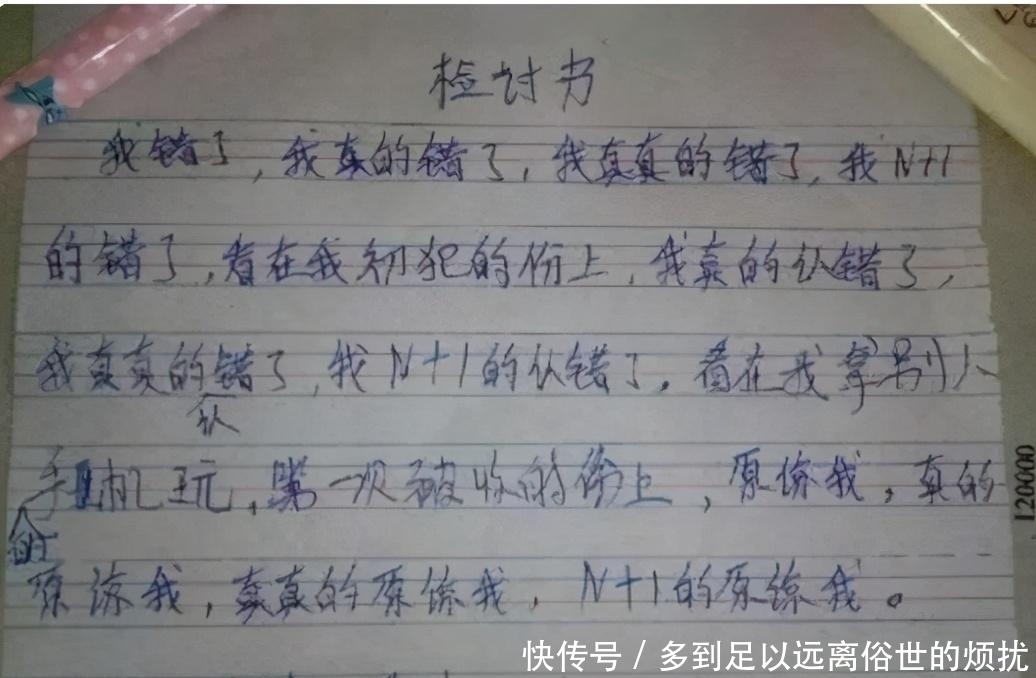 检讨书
我错了,我真的错了,我真真的错了,我N+1
的错了,看在我初犯的份上,我真的认错了,
我真真的认错了,我N+1的认错了。看在我拿别人
手机玩,第一次被收的份上,原谅我,真的
原谅我,真真的原谅我,N+1的原谅我。
120000
快传号 / 多到足以远离俗世的烦扰